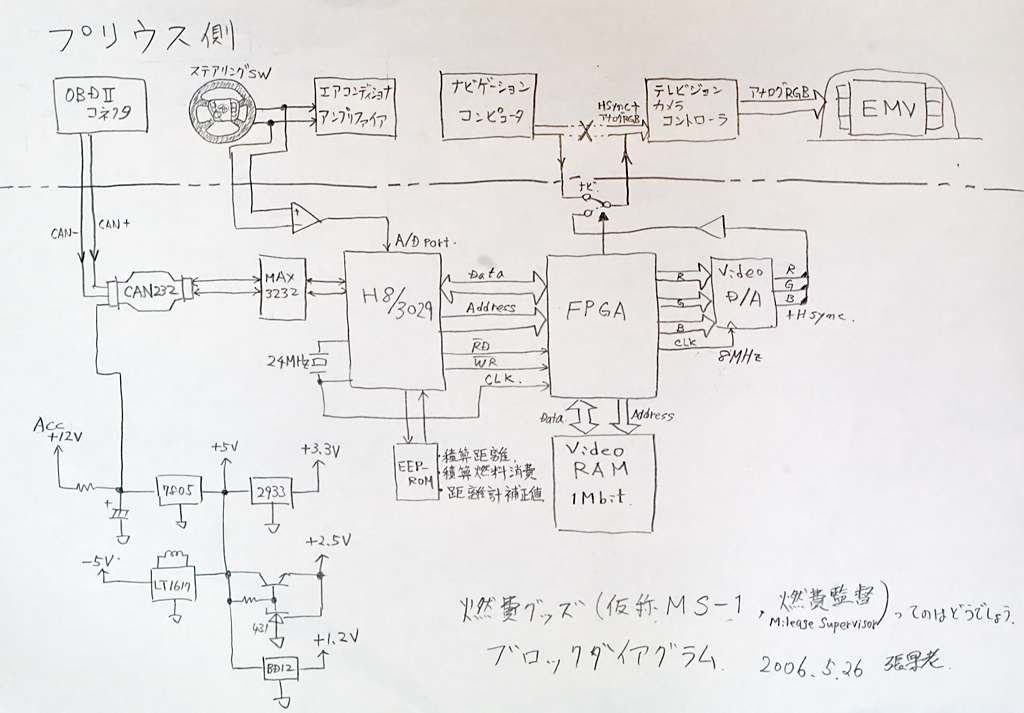 プリウス側
OBD II
コネクタ
ステアリングSW
エアコンディショナ
アンプリファイア
ナビゲーション
コンピュータ
HSync+
アナログRGB
テレビジョン
カメラ
コントローラ
アナログRGB
EMV
CAN-
CAN+
ナビ
A/D port.
CAN232
MAX
3232
H8/3029
Data
Address
RD
WR
CLK.
24MHz
FPGA
R
G
B
CLK
8MHz
Video
D/A
R
G
B
+Hsync.
Data
Address
Video
RAM
1Mbit.
EEP-
ROM
・積算距離
・積算燃料消費
・距離計補正値
Acc
+12V
+
7805
+5V
2933
+3.3V
-5V
LT1617
+2.5V
431
BD12
+1.2V
燃費グッズ(仮称MS-1, 燃費監督)ってのはどうでしょう.
Milease Supervisor
ブロックダイアグラム. 2006.5.26 張果老.